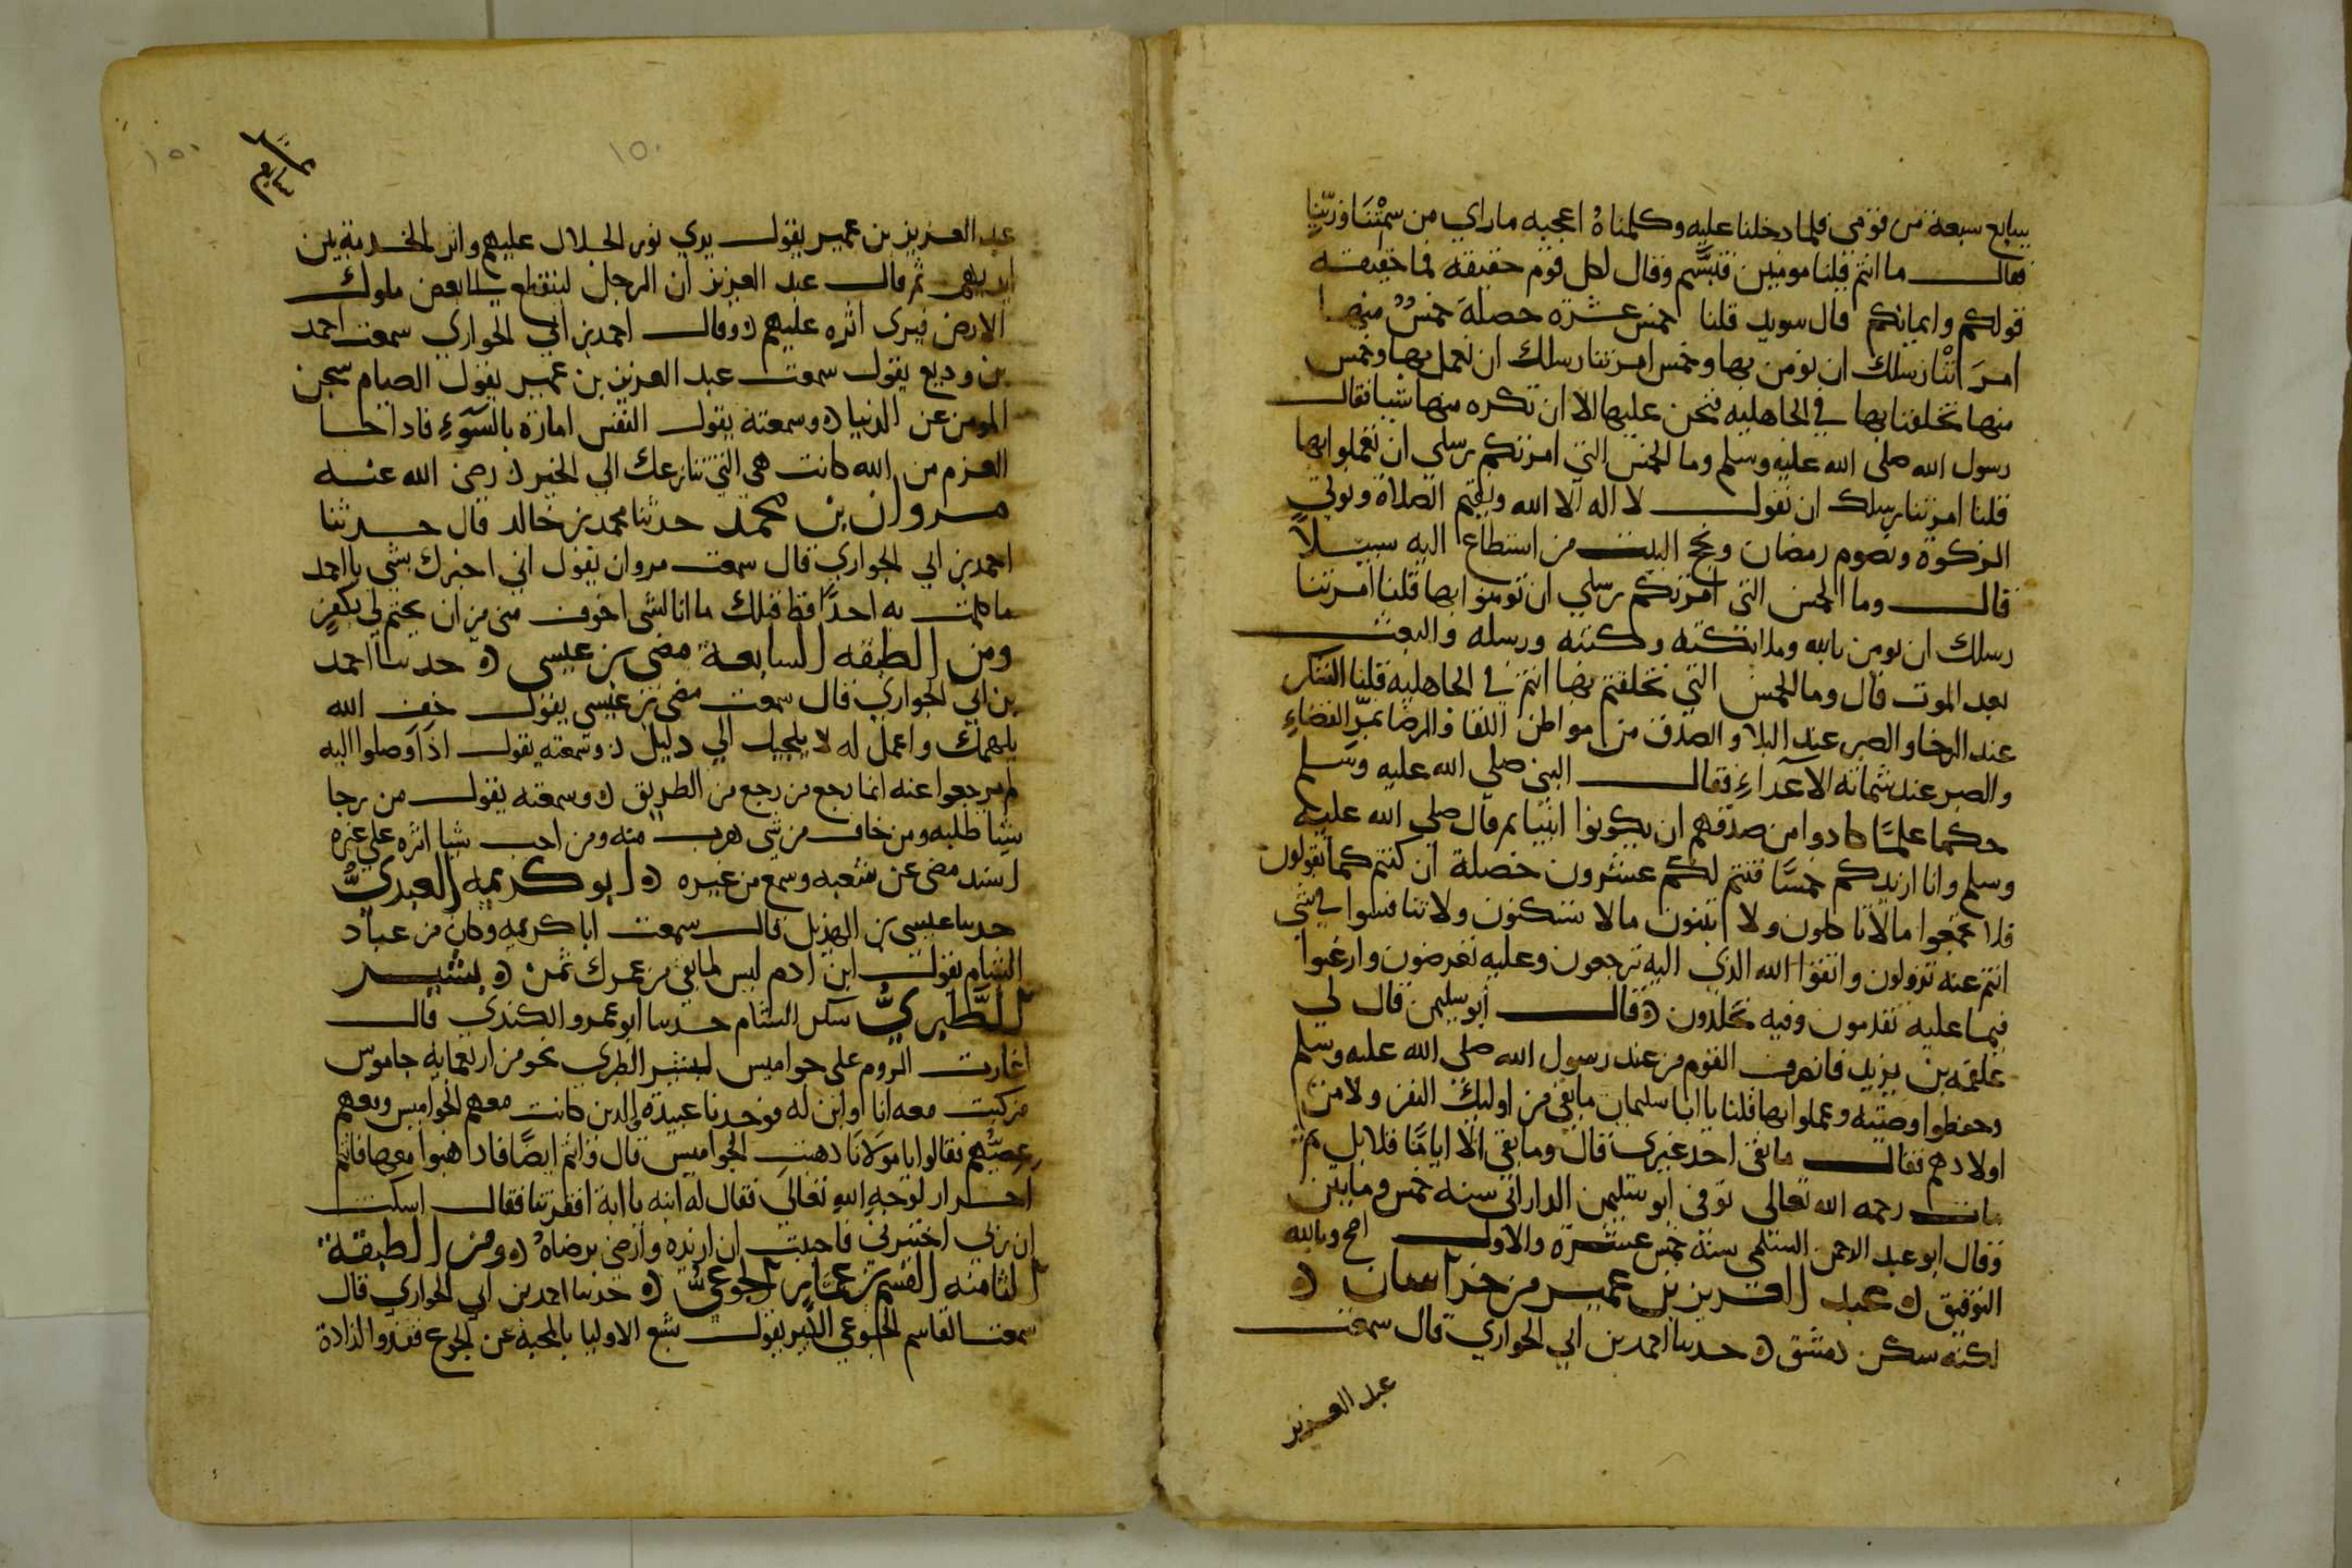 سابع سبعة من قومي فلما دخلنا عليه وكلمناه اعجبه ما راي من سمتنا وزينا
فقال ما انتم قلنا مومنين فتبسم وقال لكل قوم حقيقه فما حقيقه
قولكم وايمانكم قال سويد قلنا خمس عشره خصلة خمس منها
امرتنا رسلك ان نومن بها وخمس امرتنا رسلك ان نعمل بها وخمس
منها تخلقنا بها في الجاهليه فنحن عليها الا ان تكره منها شيا فقال
رسول الله صلى الله عليه وسلم وما الخمس التي امرتكم رسلي ان تعملوا بها
قلنا امرتنا رسلك ان نقول لا اله الا الله ونقيم الصلاة ونوتي
الزكوة ونصوم رمضان ونحج البيت من استطاع اليه سبيلا
قال وما الخمس التي امرتكم رسلي ان تومنوا بها قلنا امرتنا
رسلك ان نومن بالله وملائكته وكتبه ورسله والبعث
بعد الموت قال وما الخمس التي تخلقتم بها انتم في الجاهليه قلنا الشكر
عند الرخا والصبر عند البلا والصدق من مواطن اللقا والرضا بمر القضاء
والصبر عند شماتة الاعداء فقال النبي صلى الله عليه وسلم
حكما علما كادوا من صدقهم ان يكونوا انبيا ثم قال صلي الله عليه
وسلم وانا ازيدكم خمسا فتتم لكم عشرون خصلة ان كنتم كما تقولون
فلا تجمعوا ما لا تاكلون ولا تبنون ما لا تسكنون ولا تنافسوا في شي
انتم عنه تزولون واتقوا الله الذي اليه ترجعون وعليه تعرضون وارغبوا
فيما عليه تقدمون وفيه تخلدون ه قال ابو سليمن قال لي
علقمه بن يزيد فانصرف القوم من عند رسول الله صلى الله عليه وسلم
وحفظوا وصيته وعملوا بها قلنا يا ابا سليمان ما بقي من اوليك النفر ولا من
اولادهم فقال ما بقى احد غيرى قال وما بقى الا اياما قلايل ثم
مات رحمه الله تعالى توفي ابو سليمن الداراني سنه خمس ومايتين
وقال ابو عبد الرحمن السلمي سنة خمس عشرة والاول اصح وبالله
التوفيق ه عبد العزيز بن عمير من خراسان ه
لكنه سكن دمشق ه حدثنا احمد بن ابي الحواري قال سمعت
عبد العزيز
١٥٠
١٥٠
عبد العزيز بن عمير يقول يري نور الجلال عليهم واثر الخدمة بين
ايديهم ثم قال عبد العزيز ان الرجل لينقطع الى بعض ملوك
الارض فيرى اثره عليهم ه وقال احمد بن ابي الحواري سمعت احمد
بن وديع يقول سمعت عبد العزيز بن عمير يقول الصيام سجن
المومن عن الدنيا ه وسمعته يقول النفس امارة بالسوء فاذا جا
العزم من الله كانت هي التي تنازعك الي الخير ه رضي الله عنه
مروان بن محمد حدثنا محمد بن خالد قال حدثنا
احمد بن ابي الحواري قال سمعت مروان يقول اني اخبرك بشي يا احمد
ما كلمت به احدا قط قبلك ما انا لشي اخوف مني من ان يختم لي بكفر
ومن الطبقه السابعة مضي بن عيسى ه حدثنا احمد
بن ابي الحواري قال سمعت مضي بن عيسى يقول خف الله
يلهمك واعمل له لا يلجيك الي دليل ه وسمعته يقول اذا وصلوا اليه
لم يرجعوا عنه انما رجع من رجع من الطريق ه وسمعته يقول من رجا
شيا طلبه ومن خاف من شي هرب منه ومن احب شيا اثره على غيره
اسند مضى عن شعبه وسمع من غيره ه ابو كريمه العبدي
حدثنا عيسى بن الهذيل قال سمعت ابا كريمه وكان من عباد
الشام يقول ابن ادم ليس لما بقي من عمرك ثمن ه بشير
الطبري سكن الشام حدثنا ابو عمرو الكندي قال
اغارت الروم على جواميس لبشير الطبري نحو من اربعمايه جاموس
فركبت معه انا وابن له فوجدنا عبيده الذين كانت معهم الجواميس ومعهم
عصيهم فقالوا يا مولانا ذهبت الجواميس قال وانتم ايضا فاذهبوا معها فانتم
احرار لوجه الله تعالى فقال له ابنه يا ابة افقرتنا فقال اسكت
ان ربي اختبرني فاحببت ان ازيده وارضى برضاه ه ومن الطبقة
الثامنه القسم بن عثمان الجوعي ه حدثنا احمد بن ابي الحواري قال
سمعت القاسم الجوعي الكبير يقول شبع الاوليا بالمحبة عن الجوع ففقدوا لذاذة